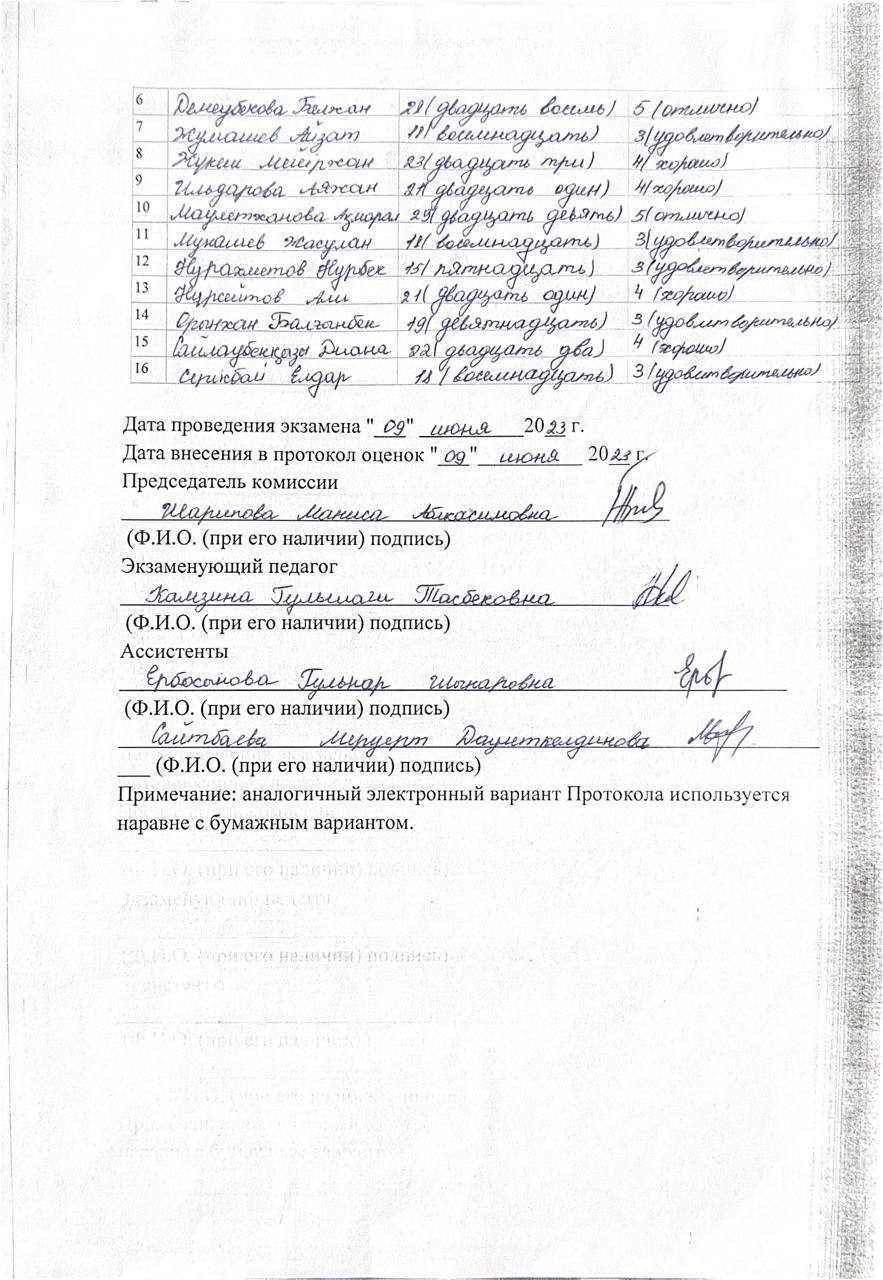 6 Демеубекова Балжан 28(двадцать восемь) 5 (отлично)
7 Жумашев Айзат 18(восемнадцать) 3(удовлетворительно)
8 Жукеш Мейіржан 23(двадцать три) 4(хорошо)
9 Ильдарова Аяжан 21(двадцать один) 4(хорошо)
10 Маулетханова Ақмарал 29(двадцать девять) 5(отлично)
11 Мукашев Жасулан 18(восемнадцать) 3(удовлетворительно)
12 Нурахметов Нурбек 15(пятнадцать) 3(удовлетворительно)
13 Нурсейтов Али 21(двадцать один) 4 (хорошо)
14 Орынхан Балғынбек 19(девятнадцать) 3(удовлитворительно)
15 Сайлаубекқызы Диана 22(двадцать два) 4 (хорошо)
16 Серикбай Елдар 18(восемнадцать) 3(удовлитворительно)
Дата проведения экзамена "09" июня 2023 г.
Дата внесения в протокол оценок "09" июня 2023 г.
Председатель комиссии
Шарипова Маниса Абкасимовна
(Ф.И.О. (при его наличии) подпись)
Экзаменующий педагог
Камзина Гульшаги Тасбековна
(Ф.И.О. (при его наличии) подпись)
Ассистенты
Ербосынова Гульнар Шынаровна
(Ф.И.О. (при его наличии) подпись)
Сайтбаева Меруерт Даулеткелдинова
___ (Ф.И.О. (при его наличии) подпись)
Примечание: аналогичный электронный вариант Протокола используется
наравне с бумажным вариантом.